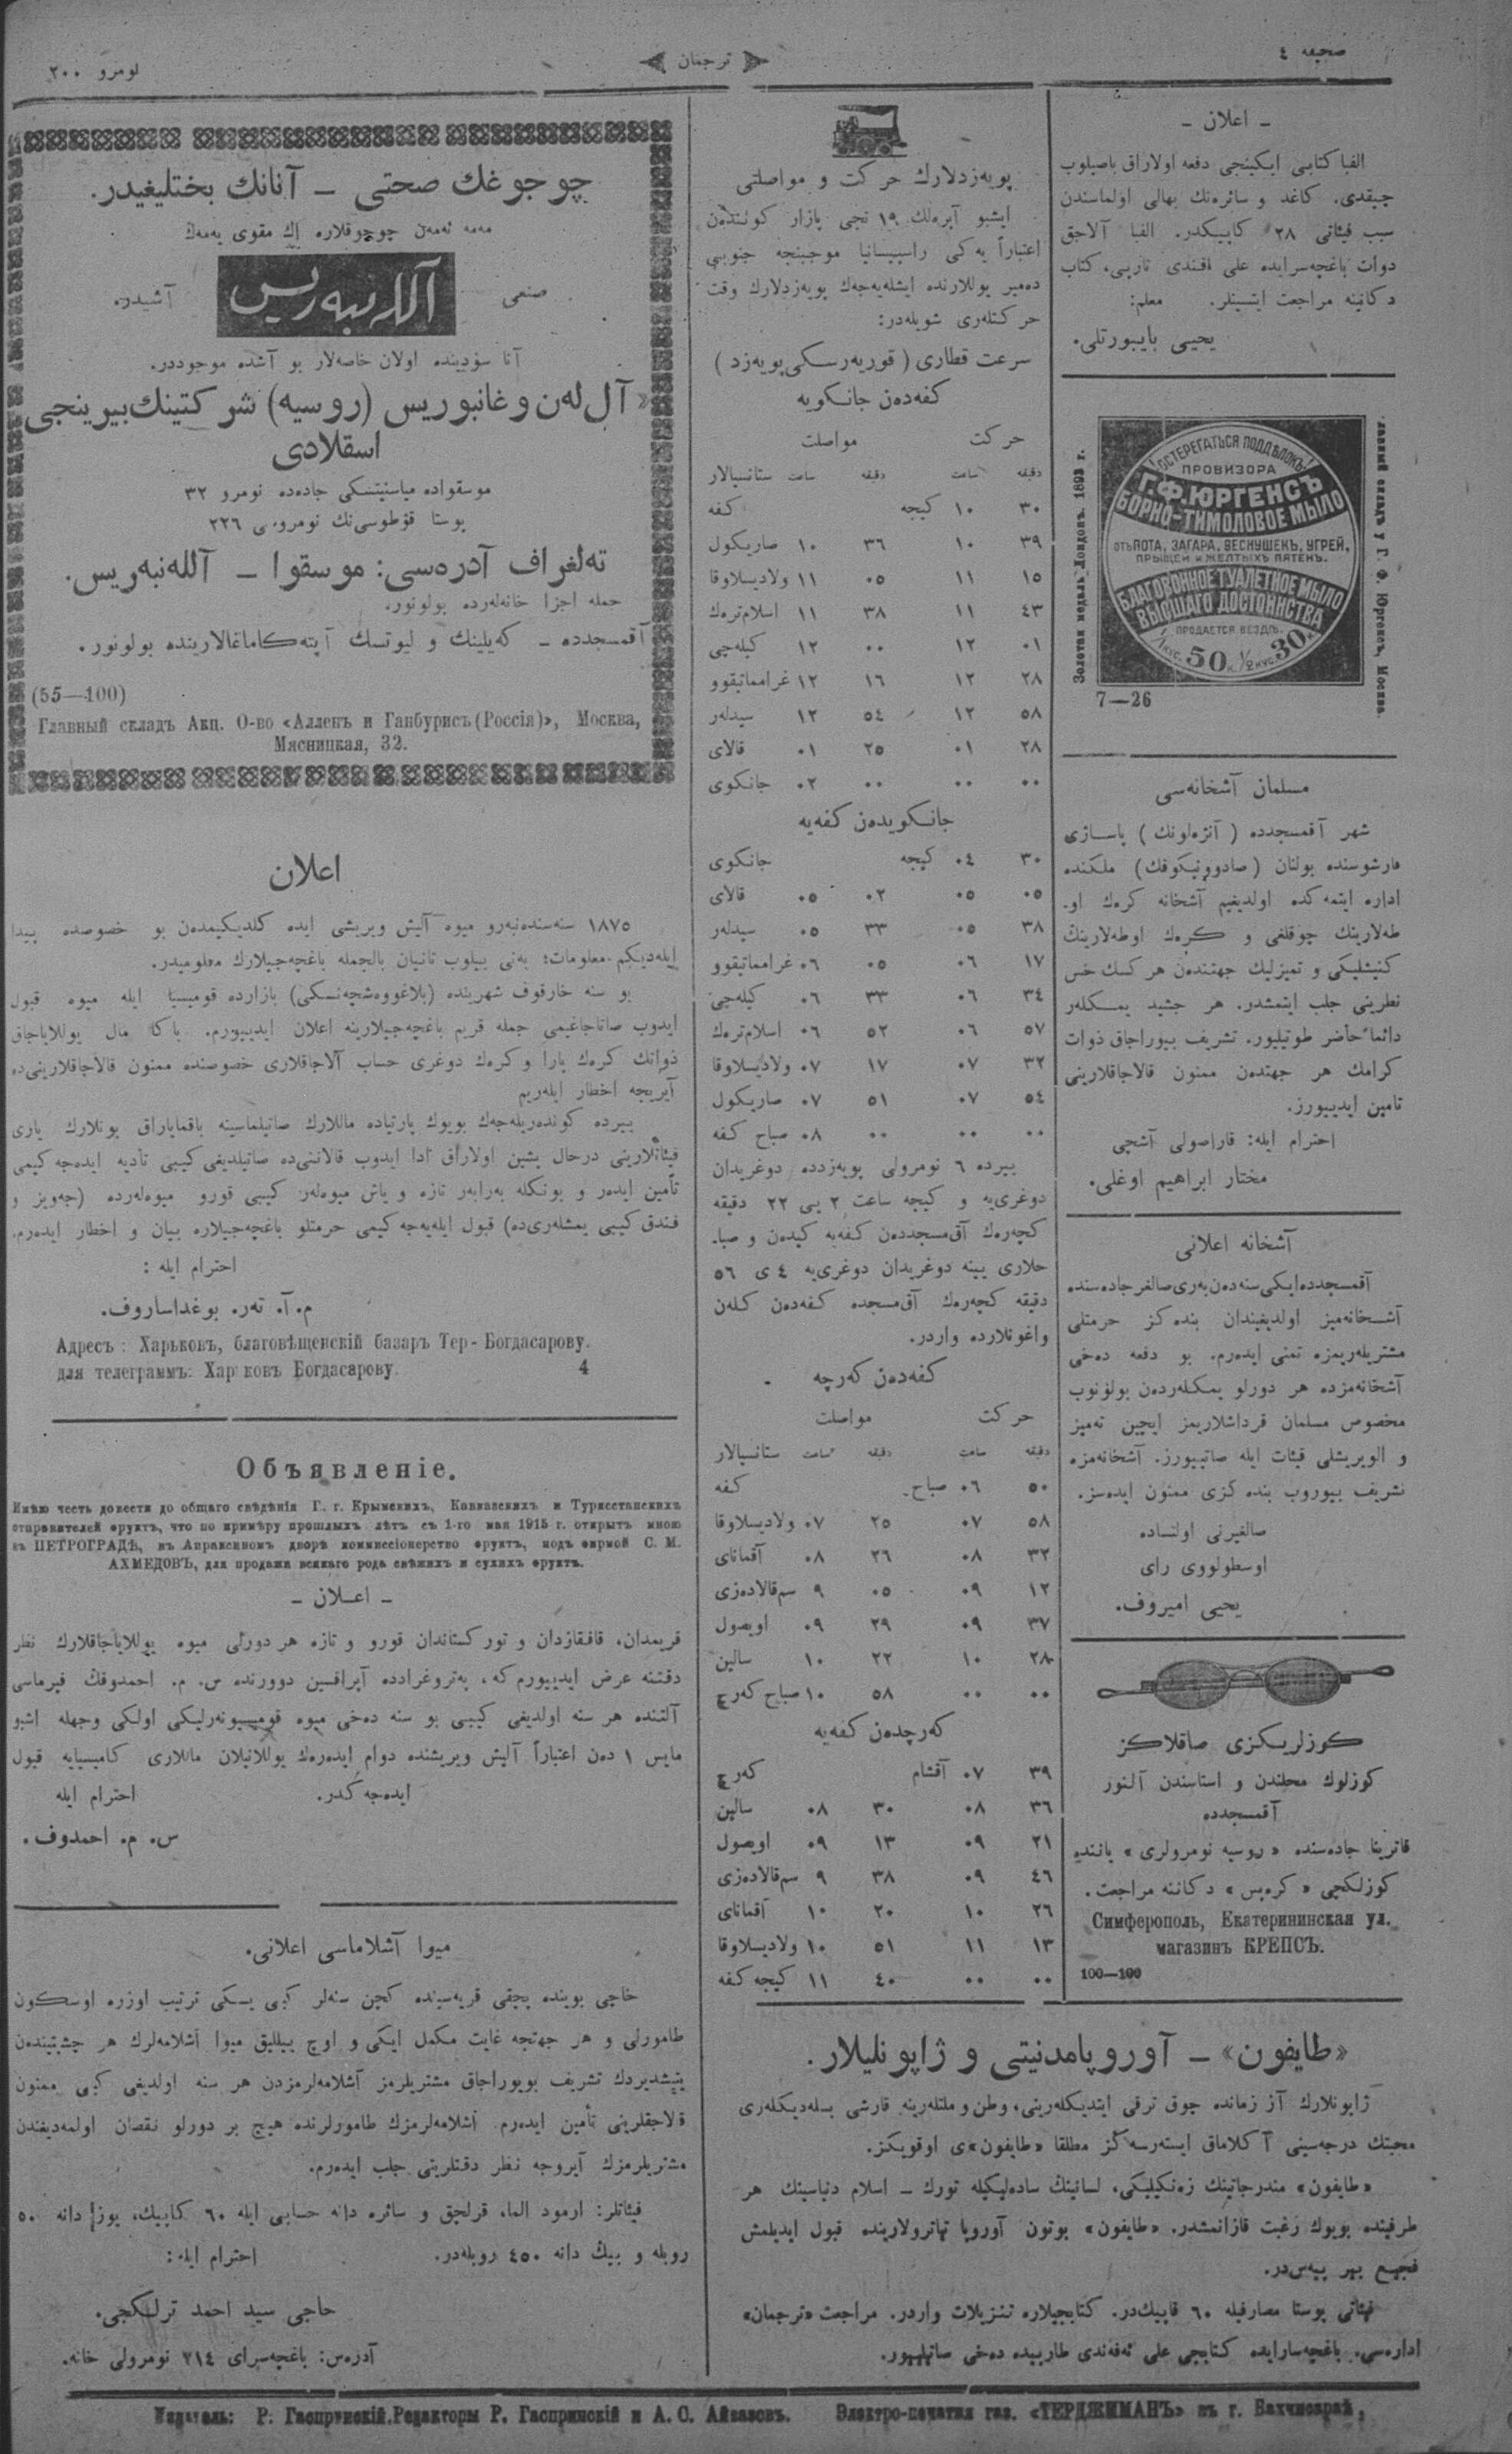 صحیفه ٤
ترجمان
نومرو ٢٠٠
ـ اعلان ـ
الفبا كتابی ایكینجی دفعه اولاراق باصیلوب
چیقدی. كاغد و سائره‌نك بهالی اولماسندن
سبب فیئاتی ٢٨ كاپیكدر. الفبا آلاجق
ذوات باغچه‌سرایده علی افندی تارپی، كتاب
دكانینه مراجعت ایتسینلر. معلم:
یحیی بایبورتلی.
ОСТЕРЕГАТЬСЯ ПОДДѢЛОКЪ!
ПРОВИЗОРА
Г.Ф.ЮРГЕНСЪ
БОРНО-ТИМОЛОВОЕ МЫЛО
отъ ПОТА, ЗАГАРА, ВЕСНУШЕКЪ, УГРЕЙ,
ПРЫЩЕЙ и ЖЕЛТЫХЪ ПЯТЕНЪ.
БЛАГОВОННОЕ ТУАЛЕТНОЕ МЫЛО
ВЫСШАГО ДОСТОИНСТВА
ПРОДАЕТСЯ ВЕЗДѢ.
1 кус. 50 к. 1/2 кус. 30 к.
Золотая медаль Лондонъ. 1893 г.
главный складъ у Г. Ф. Юргенсъ, Москва.
7—26
مسلمان آشخانه‌سی
شهر آقمسجدده ( آنژه‌لونك ) پاساژی
قارشوسنده بولنان (صادوونیكوفك) ملكنده
اداره ایتمه‌كده اولدیغیم آشخانه كرەك او-
طه‌لارینك چوقلغی و كرەك اوطه‌لارینك
كنیشلیكی و تمیزلیك جهتندەن هر كسك حس
نظرینی جلب ایتمشدر. هر جشید یمكلەر
دائما حاضر طوتیلیور. تشریف بیوراجاق ذوات
كرامك هر جهتدەن ممنون قالاجاقلارینی
تامین ایدییورز.
احترام ایله: قاراصولی آشچی
مختار ابراهیم اوغلی.
آشخانه اعلانی
آقمسجددەایكی‌سنه‌دەن‌بەری‌صالغر جادەسنده
آشخانەمیز اولدیغیندان بنده‌كز حرمتلی
مشتریلەریمزه تمنی ایدەرم. بو دفعه دەخی
آشخانەمزده هر دورلو یمكلەردەن بولۇنوب
مخصوص مسلمان قرداشلاریمز ایچین تەمیز
و الویریشلی فیئات ایله صاتییورز. آشخانەمزه
تشریف بیوروب بنده‌كزی ممنون ایدەسز.
صالغیرنی اولتساده
اوسطولووی رای
یحیی امیروف.
كوزلریكزی صاقلاكز
كوزلوك محلندن و استاسندن آلنور
آقمسجدده
قاترینا جادەسنده «روسیه نومرولری» یاننده
كوزلكچی «كرەپس» دكاننه مراجعت.
Симферополь, Екатерининская ул.
магазинъ КРЕПСЪ.
100—100
پویەزدلارك حركت و مواصلتی
ایشبو آپرەلك ١٩ نجی بازار كونندەن
اعتباراً یەكی راسپیسانیا موجبنجه جنوبی
دەمیر یوللارنده ایشلەیەجەك پویەزدلارك وقت
حركتلەری شویلەدر:
سرعت قطاری ( قوریەرسكی پویەزد )
كفەدەن جانكویه
حركت مواصلت
دقیقه ساعت دقیقه ساعت ستانسیالار
٣٠ ١٠ كیجه كفه
٣٩ ١٠ ٣٦ ١٠ صاریكول
١٥ ١١ ٠٥ ١١ ولادیسلاوقا
٤٣ ١١ ٣٨ ١١ اسلام‌ترەك
٠١ ١٢ ٠٠ ١٢ كیله‌چی
٢٨ ١٢ ١٦ ١٢ غراماتیقوو
٥٨ ١٢ ٥٤ ١٢ سیدلەر
٢٨ ٠١ ٢٥ ٠١ قالای
٠٠ ٠٠ ٠٠ ٠٢ جانكوی
جانكویدەن كفەیه
٣٠ ٠٤ كیجه جانكوی
٠٥ ٠٥ ٠٢ ٠٥ قالای
٣٨ ٠٥ ٣٣ ٠٥ سیدلەر
١٧ ٠٦ ٠٥ ٠٦ غراماتیقوو
٣٤ ٠٦ ٣٣ ٠٦ كیله‌چی
٥٧ ٠٦ ٥٢ ٠٦ اسلام‌ترەك
٣٢ ٠٧ ١٧ ٠٧ ولادیسلاوقا
٥٤ ٠٧ ٥١ ٠٧ صاریكول
٠٠ ٠٠ ٠٠ ٠٨ صباح كفه
بیرده ٦ نومرولی پویەزدده دوغریدان
دوغری‌یه و كیجه ساعت ٢ یی ٢٢ دقیقه
كچەرەك آق‌مسجددەن كفەیه كیدەن و صبا-
حلاری یینه دوغریدان دوغری‌یه ٤ ی ٥٦
دقیقه كچەرەك آق‌مسجده كفەدەن كلەن
واغونلارده واردر.
كفەدەن كەرچه
حركت مواصلت
دقیقه ساعت دقیقه ساعت ستانسیالار
٥٠ ٠٦ صباح كفه
٥٨ ٠٧ ٢٥ ٠٧ ولادیسلاوقا
٣٢ ٠٨ ٢٦ ٠٨ آقمانای
١٢ ٠٩ ٠٥ ٩ سم‌قالادەزی
٣٧ ٠٩ ٢٩ ٠٩ اویصول
٢٨ ١٠ ٢٢ ١٠ سالین
٠٠ ٠٠ ٥٨ ١٠ صباح كەرچ
كەرچدەن كفەیه
٣٩ ٠٧ آقشام كەرچ
٣٦ ٠٨ ٣٠ ٠٨ سالین
٢١ ٠٩ ١٣ ٠٩ اویصول
٤٦ ٠٩ ٣٨ ٩ سم‌قالادەزی
٢٦ ١٠ ٢٠ ١٠ آقمانای
١٣ ١١ ٥١ ١٠ ولادیسلاوقا
٠٠ ٠٠ ٤٠ ١١ كیجه كفه
چوجوغك صحتی ـ آنانك بختلیغیدر.
مەمه ئەمەن چوجوقلاره اك مقوی یەمەك
صنعی آللەنبەریس آشیدر.
آنا سؤدینده اولان خاصەلار بو آشده موجوددر.
«آل‌لەن و غانبوریس (روسیه) شركتینك بیرینجی
اسقلادی
موسقواده میاسنیتسكی جادەده نومرو ٣٢
پوستا قۇطوسی‌نك نومروسی ٢٢٦
تەلغراف آدرەسی: موسقوا ـ آللەنبەریس.
جمله اجزا خانەلەرده بولونور.
آقمسجدده ـ كەیلینك و لیوتسك آپتەكاماغالارینده بولونور.
(55—100)
Главный складъ Акц. О-во «Алленъ и Ганбурисъ (Россія)», Москва,
Мясницкая, 32.
اعلان
١٨٧٥ سنەسندەنبەرو میوه آلیش ویریشی ایده كلدیكیمدەن بو خصوصده پیدا
ایلەدیكم معلومات؛ یەنی بیلوب تانیان بالجمله باغچەجیلارك معلومیدر.
بو سنه خارقوف شهرینده (بلاغووەشچەنسكی) بازارده قومیسیا ایله میوه قبول
ایدوب صاتاجاغیمی جمله قریم باغچەجیلارینه اعلان ایدییورم. باكا مال یوللایاجاق
ذواتك كرەك پارا و كرەك دوغری حساب آلاجاقلاری خصوصنده ممنون قالاجاقلارینی‌ده
آیریجه اخطار ایلەریم
بیرده كوندەریلەجەك بویوك پارتیاده ماللارك صاتیلماسینه باقمایاراق بونلارك یاری
فیئاتلارینی درحال پشین اولاراق ادا ایدوب قالاننی‌ده صاتیلدیغی كیبی تأدیه ایدەجەكیمی
تأمین ایدەر و بونكله بەرابەر تازه و یاش میوەلەر كیبی قورو میوەلەرده (جەویز و
فندق كیبی یمشلەری‌ده) قبول ایلەیەجەكیمی حرمتلو باغچەجیلاره بیان و اخطار ایدەرم.
احترام ایله :
م. آ. تەر. بوغداساروف.
Адресъ: Харьковъ, благовѣщенскій базаръ Тер-Богдасарову.
для телеграммъ: Харьковъ Богдасарову. 4
Объявленіе.
Имѣю честь довести до общаго свѣдѣнія Г. г. Крымскихъ, Кавказскихъ и Туркестанскихъ
отправителей фруктъ, что по примѣру прошлыхъ лѣтъ съ 1-го мая 1915 г. открытъ мною
въ ПЕТРОГРАДѢ, въ Апраксиномъ дворѣ коммиссіонерство фруктъ, подъ фирмой С. М.
АХМЕДОВЪ, для продажи всякаго рода свѣжихъ и сухихъ фруктъ.
ـ اعلان ـ
قریمدان، قافقازدان و توركستاندان قورو و تازه هر دورلی میوه یوللایاجاقلارك نظر
دقتنه عرض ایدییورم كه، پەتروغرادده آپراقسین دوورنده س. م. احمدوفك فیرماسی
آلتنده هر سنه اولدیغی كیبی بو سنه دەخی میوه قومیسیونەرلیكی اولكی وجهله اشبو
مایس ١ دەن اعتباراً آلیش ویریشنده دوام ایدەرەك یوللانیلان ماللاری كامیسیایه قبول
ایدەجەكدر. احترام ایله
س. م. احمدوف.
میوا آشلاماسی اعلانی.
حاجی بوینده بچقی قریەسینده كچن سنەلر كبی یسكی ترتیب اوزره اوسكون
طامورلی و هر جهتجه غایت مكمل ایكی و اوچ ییللیق میوا آشلامەلرك هر چشیتیندەن
یتیشدیردك تشریف بویوراجاق مشتریلرمز آشلامەلرمزدن هر سنه اولدیغی كبی ممنون
قالاجقلرینی تأمین ایدەرم. آشلامەلرمزك طامورلرنده هیچ بر دورلو نقصان اولمەدیغندن
مشتریلرمزك آیروجه نظر دقتلرینی جلب ایدەرم.
فیئاتلر: ارمود الما، قرلجق و سائره دانه حسابی ایله ٦٠ كاپیك، یوز دانه ٥٠
روبله و بیك دانه ٤٥٠ روبلەدر. احترام ایله:
حاجی سید احمد ترلیكجی.
آدرەس: باغچەسرای ٢١٤ نومرولی خانه.
«طایفون» ـ آوروپامدنیتی و ژاپونلیلار.
ژاپونلارك آز زمانده چوق ترقی ایتدیكلەرینی، وطن و ملتلەرینه قارشی بسلەدیكلەری
محبتك درجەسینی آكلاماق ایستەرسەكز مطلقا «طایفون»ی اوقویكز.
«طایفون» مندرجاتینك زەنكینلیكی، لسانینك سادەلیكیله تورك ـ اسلام دنیاسینك هر
طرفینده بویوك رغبت قازانمشدر. «طایفون» بوتون آوروپا تیاترولارینده قبول ایدیلمش
فجیع بیر پیەس‌در.
فیئاتی پوستا مصارفیله ٦٠ قاپیك‌در. كتابجیلاره تنزیلات واردر. مراجعت «ترجمان»
ادارەسی. باغچەسارایده كتابجی علی ئەفەندی طارپیده دەخی صاتیلیور.
Издатель: Р. Гаспринскій. Редакторы Р. Гаспринскій и А. С. Айвазовъ. Электро-печатня газ. «ТЕРДЖИМАНЪ» въ г. Бахчисараѣ.